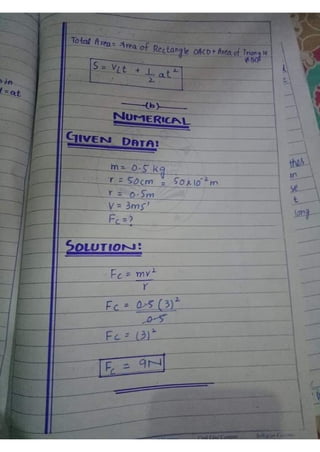 Total Area = Area of Rectangle OACD + Area of Triangle ABD
S = Vit + 1/2 at²
(b)
NUMERICAL
GIVEN DATA:
m = 0.5 kg
r = 50cm = 50x10⁻²m
r = 0.5m
V = 3ms¹
Fc = ?
SOLUTION:
Fc = mv²/r
Fc = 0.5 (3)²/0.5
Fc = (3)²
Fc = 9N
in
= at
this
in
se
t
long